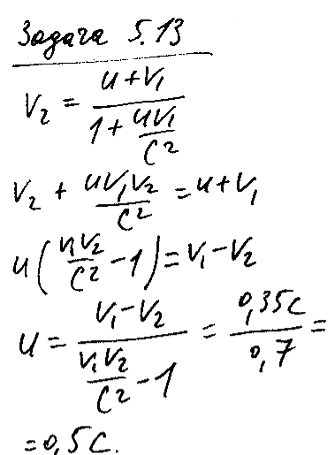 Задача 5.13
V₂ = (u+V₁)/(1+uV₁/c²)
V₂ + uV₁V₂/c² = u+V₁
u(V₁V₂/c² -1)=V₁-V₂
u = (V₁-V₂)/(V₁V₂/c² -1) = 0,35c/0,7 =
=0,5c.